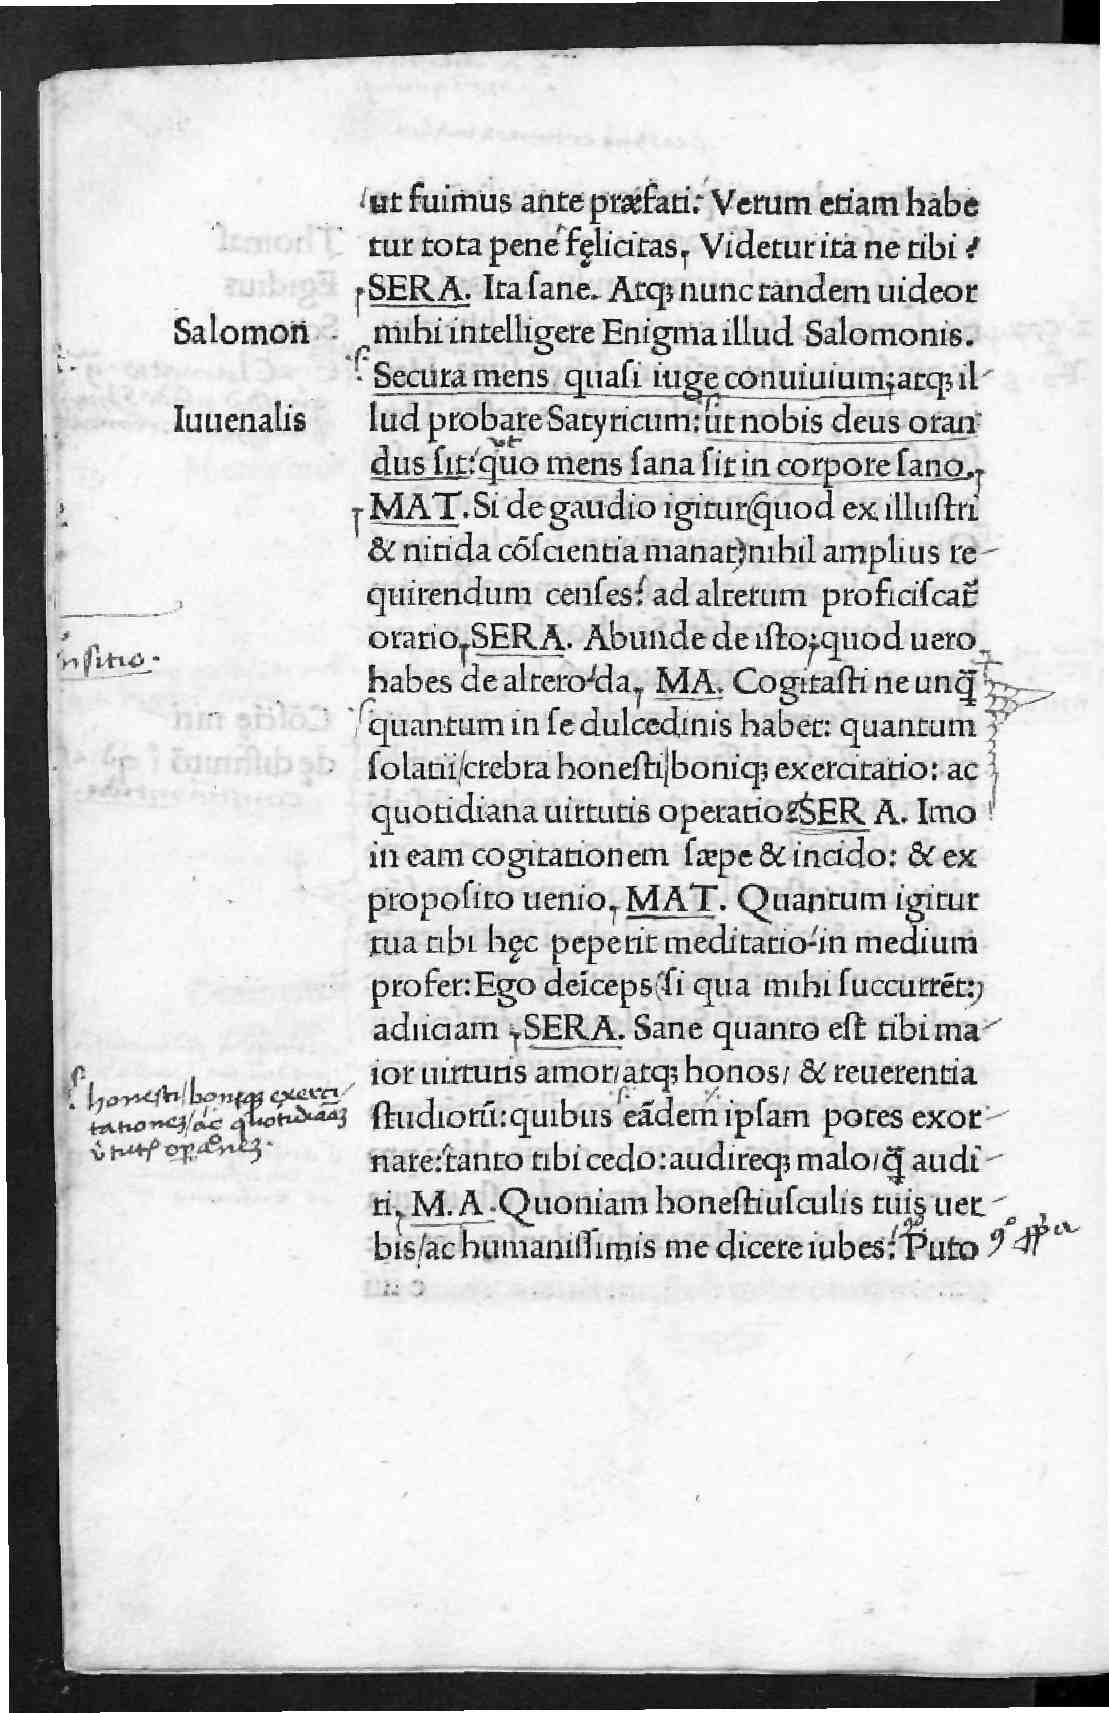 ut fuimus ante præfati: Verum etiam habe
tur tota pene fęlicitas, Videtur ita ne tibi?
SERA. Ita sane. Atq; nunc tandem uideor
Salomon
mihi intelligere Enigma illud Salomonis.
Secura mens quasi iuge conuiuium; atq; il
Iuuenalis
lud probare Satyricum: ut nobis deus oran
dus sit: quo mens sana sit in corpore sano.
MAT. Si de gaudio igitur (quod ex illustri
& nitida cōscientia manat) nihil amplius re
quirendum censes: ad alterum proficiscat̄
oratio, SERA. Abunde de isto; quod uero
nsitio.
habes de altero da, MA. Cogitasti ne unq̄
quantum in se dulcedinis habet: quantum
solatii/crebra honesti/boniq; exercitatio: ac
quotidiana uirtutis operatio? SERA. Imo
in eam cogitationem sæpe & incido: & ex
proposito uenio, MAT. Quantum igitur
tua tibi hęc peperit meditatio in medium
profer: Ego deīceps (si qua mihi succurrēt:)
adiiciam, SERA. Sane quanto est tibi ma
ior uirtutis amor/atq; honos/ & reuerentia
honesti/boniq; exerci
tationez/ac quotidianaz
studiorū: quibus eādem ipsam potes exor
nare: tanto tibi cedo: audireq; malo/q̄ audi
ti, M.A. Quoniam honestiusculis tuis uer
bis/ac humanissimis me dicere iubes: Puto